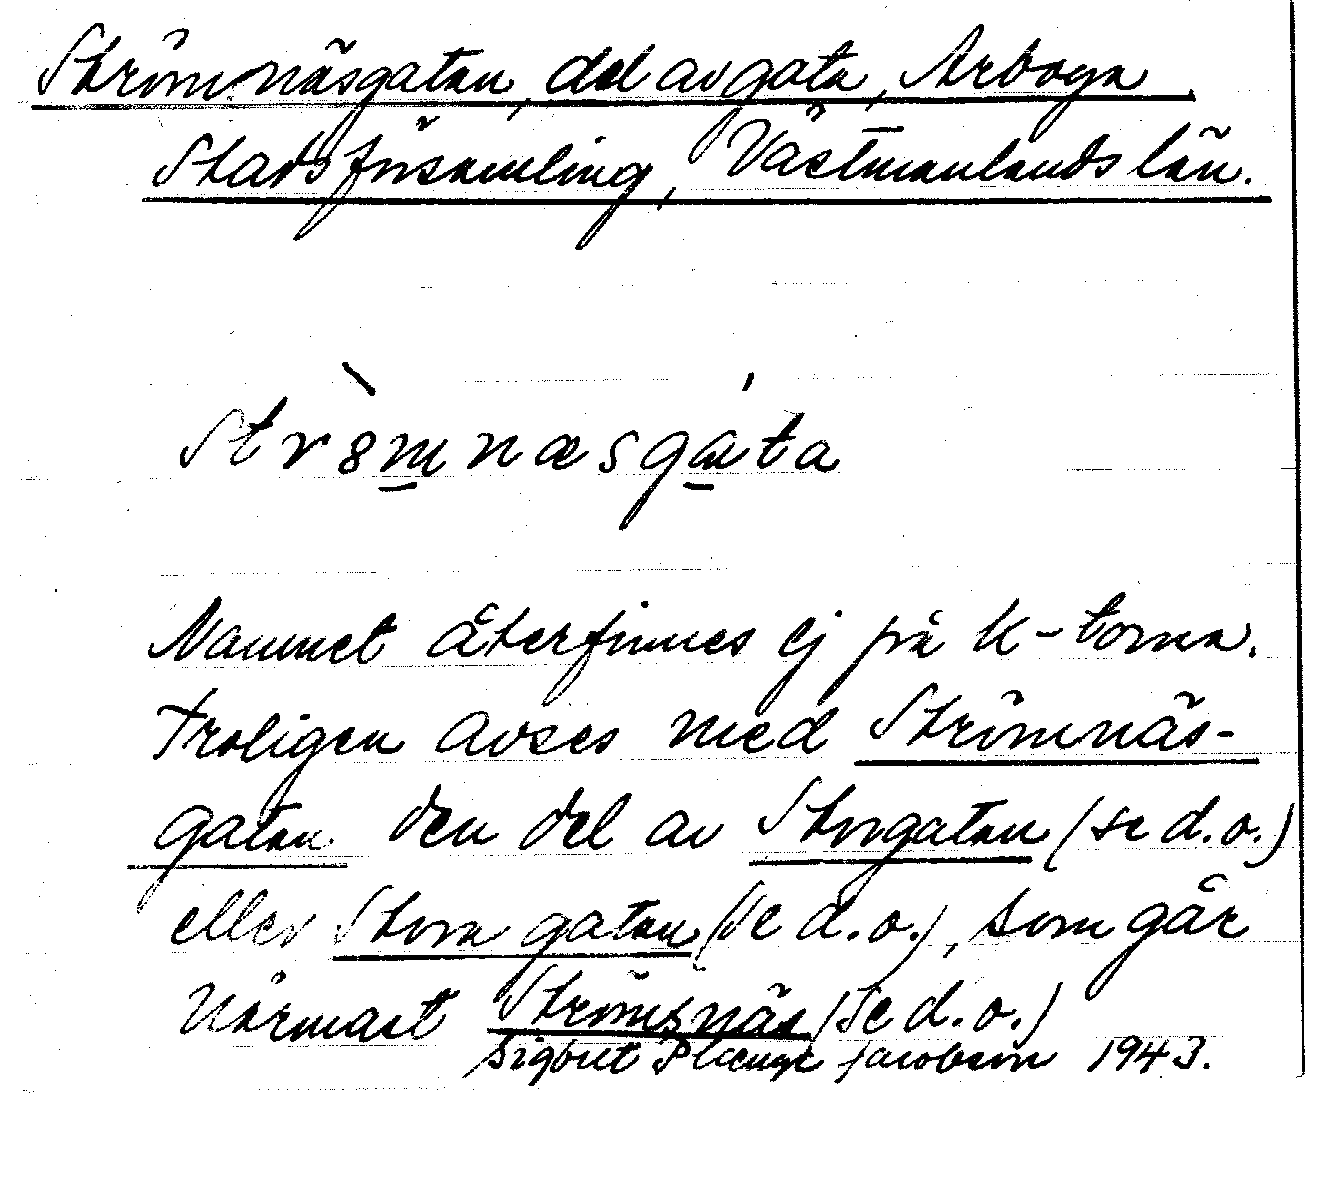 Strömnäsgatan, del av gata, Arboga
Stadsförsamling, Västmanlands län.
strömnæsgata
Namnet återfinnes ej på K-torna.
Troligen avses med Strömnäs-
gatan den del av Storgatan (se d.o.)
eller Stora gatan (se d.o.), som går
närmast Strömsnäs (se d.o.)
Sigbrit Plænge Jacobson 1943.